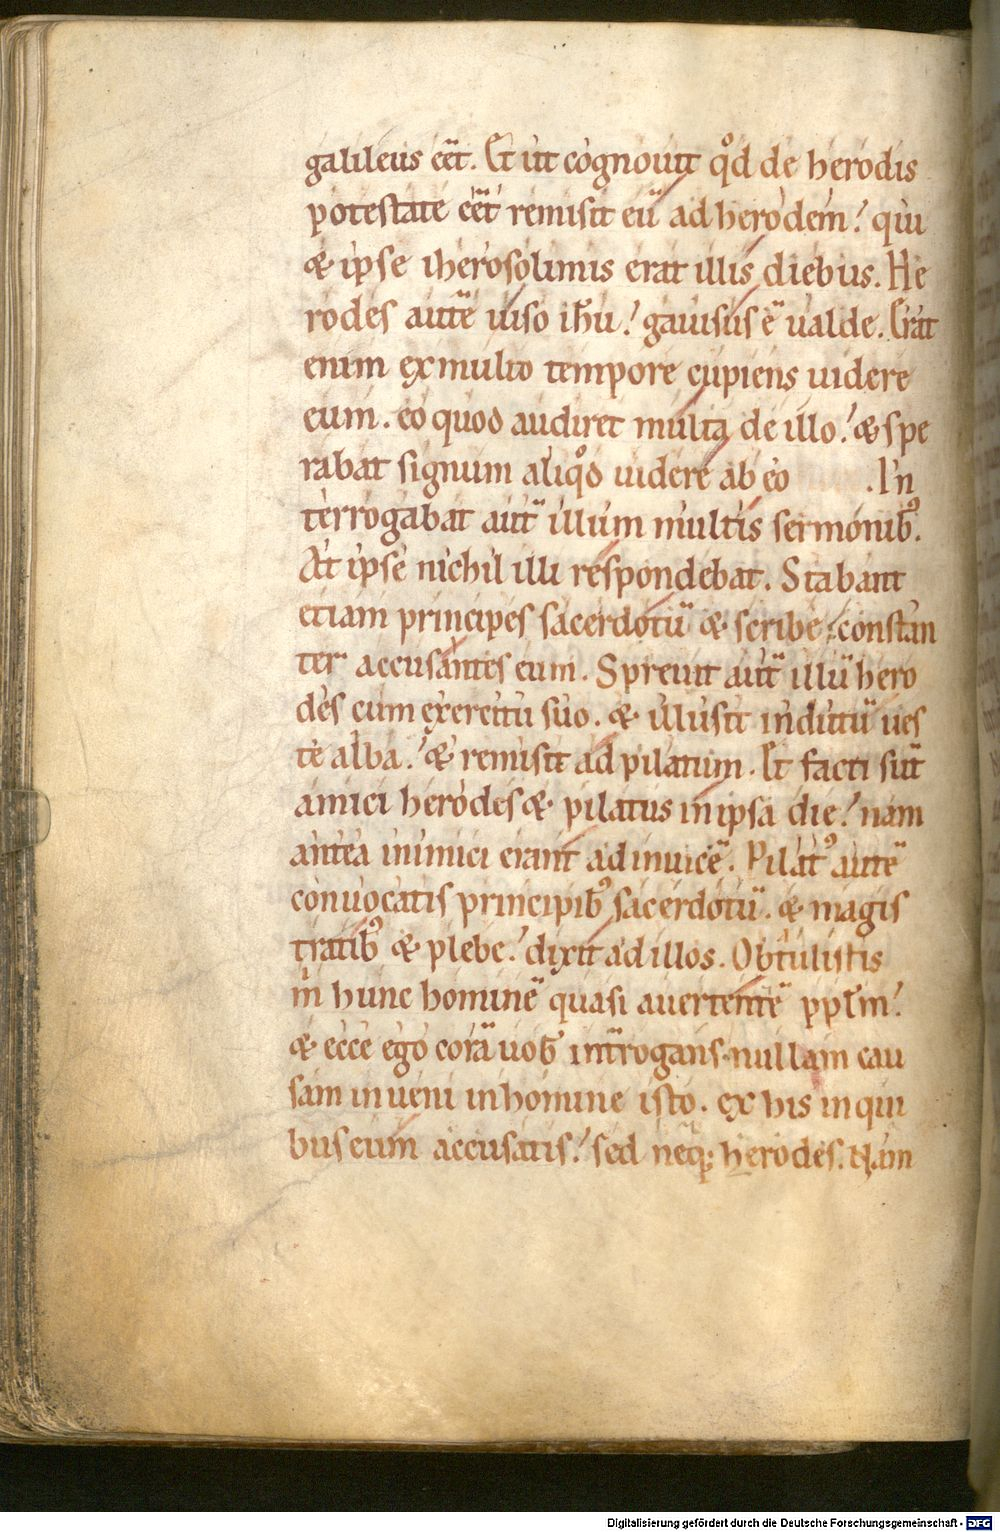 galileus eēt. Et ut cognouit qͦd de herodis
potestate eēt remisit eū ad herodem! qui
& ipse iherosolimis erat illis diebus. He
rodes autē uiso ihu̅! gauisus ē ualde. Erat
enim ex multo tempore cupiens uidere
eum. eo quod audiret multa de illo! & spe
rabat signum aliqͦd uidere ab eo .In
terrogabat aut̄ illum multis sermonib⁹.
At ipse nichil illi respondebat. Stabant
etiam principes sacerdotū & scribe constan
ter accusantes eum. Spreuit aut̄ illū hero
des cum exercitu suo. & illusit indutū ues
te alba! & remisit ad pilatum. Et facti sūt
amici herodes & pilatus in ipsa die! nam
antea inimici erant ad inuicē. Pilat⁹ autē
conuocatis principib⁹ sacerdotū. & magis
tratib⁹ & plebe! dixit ad illos. Obtulistis
m̍ hunc hominē quasi auertentē pplm̅!
& ecce ego corā uob̅ int̄rogans nullam cau
sam inueni in homine isto. ex his in qui
bus eum accusatis! sed neq; herodes. Nam
Digitalisierung gefördert durch die Deutsche Forschungsgemeinschaft - DFG